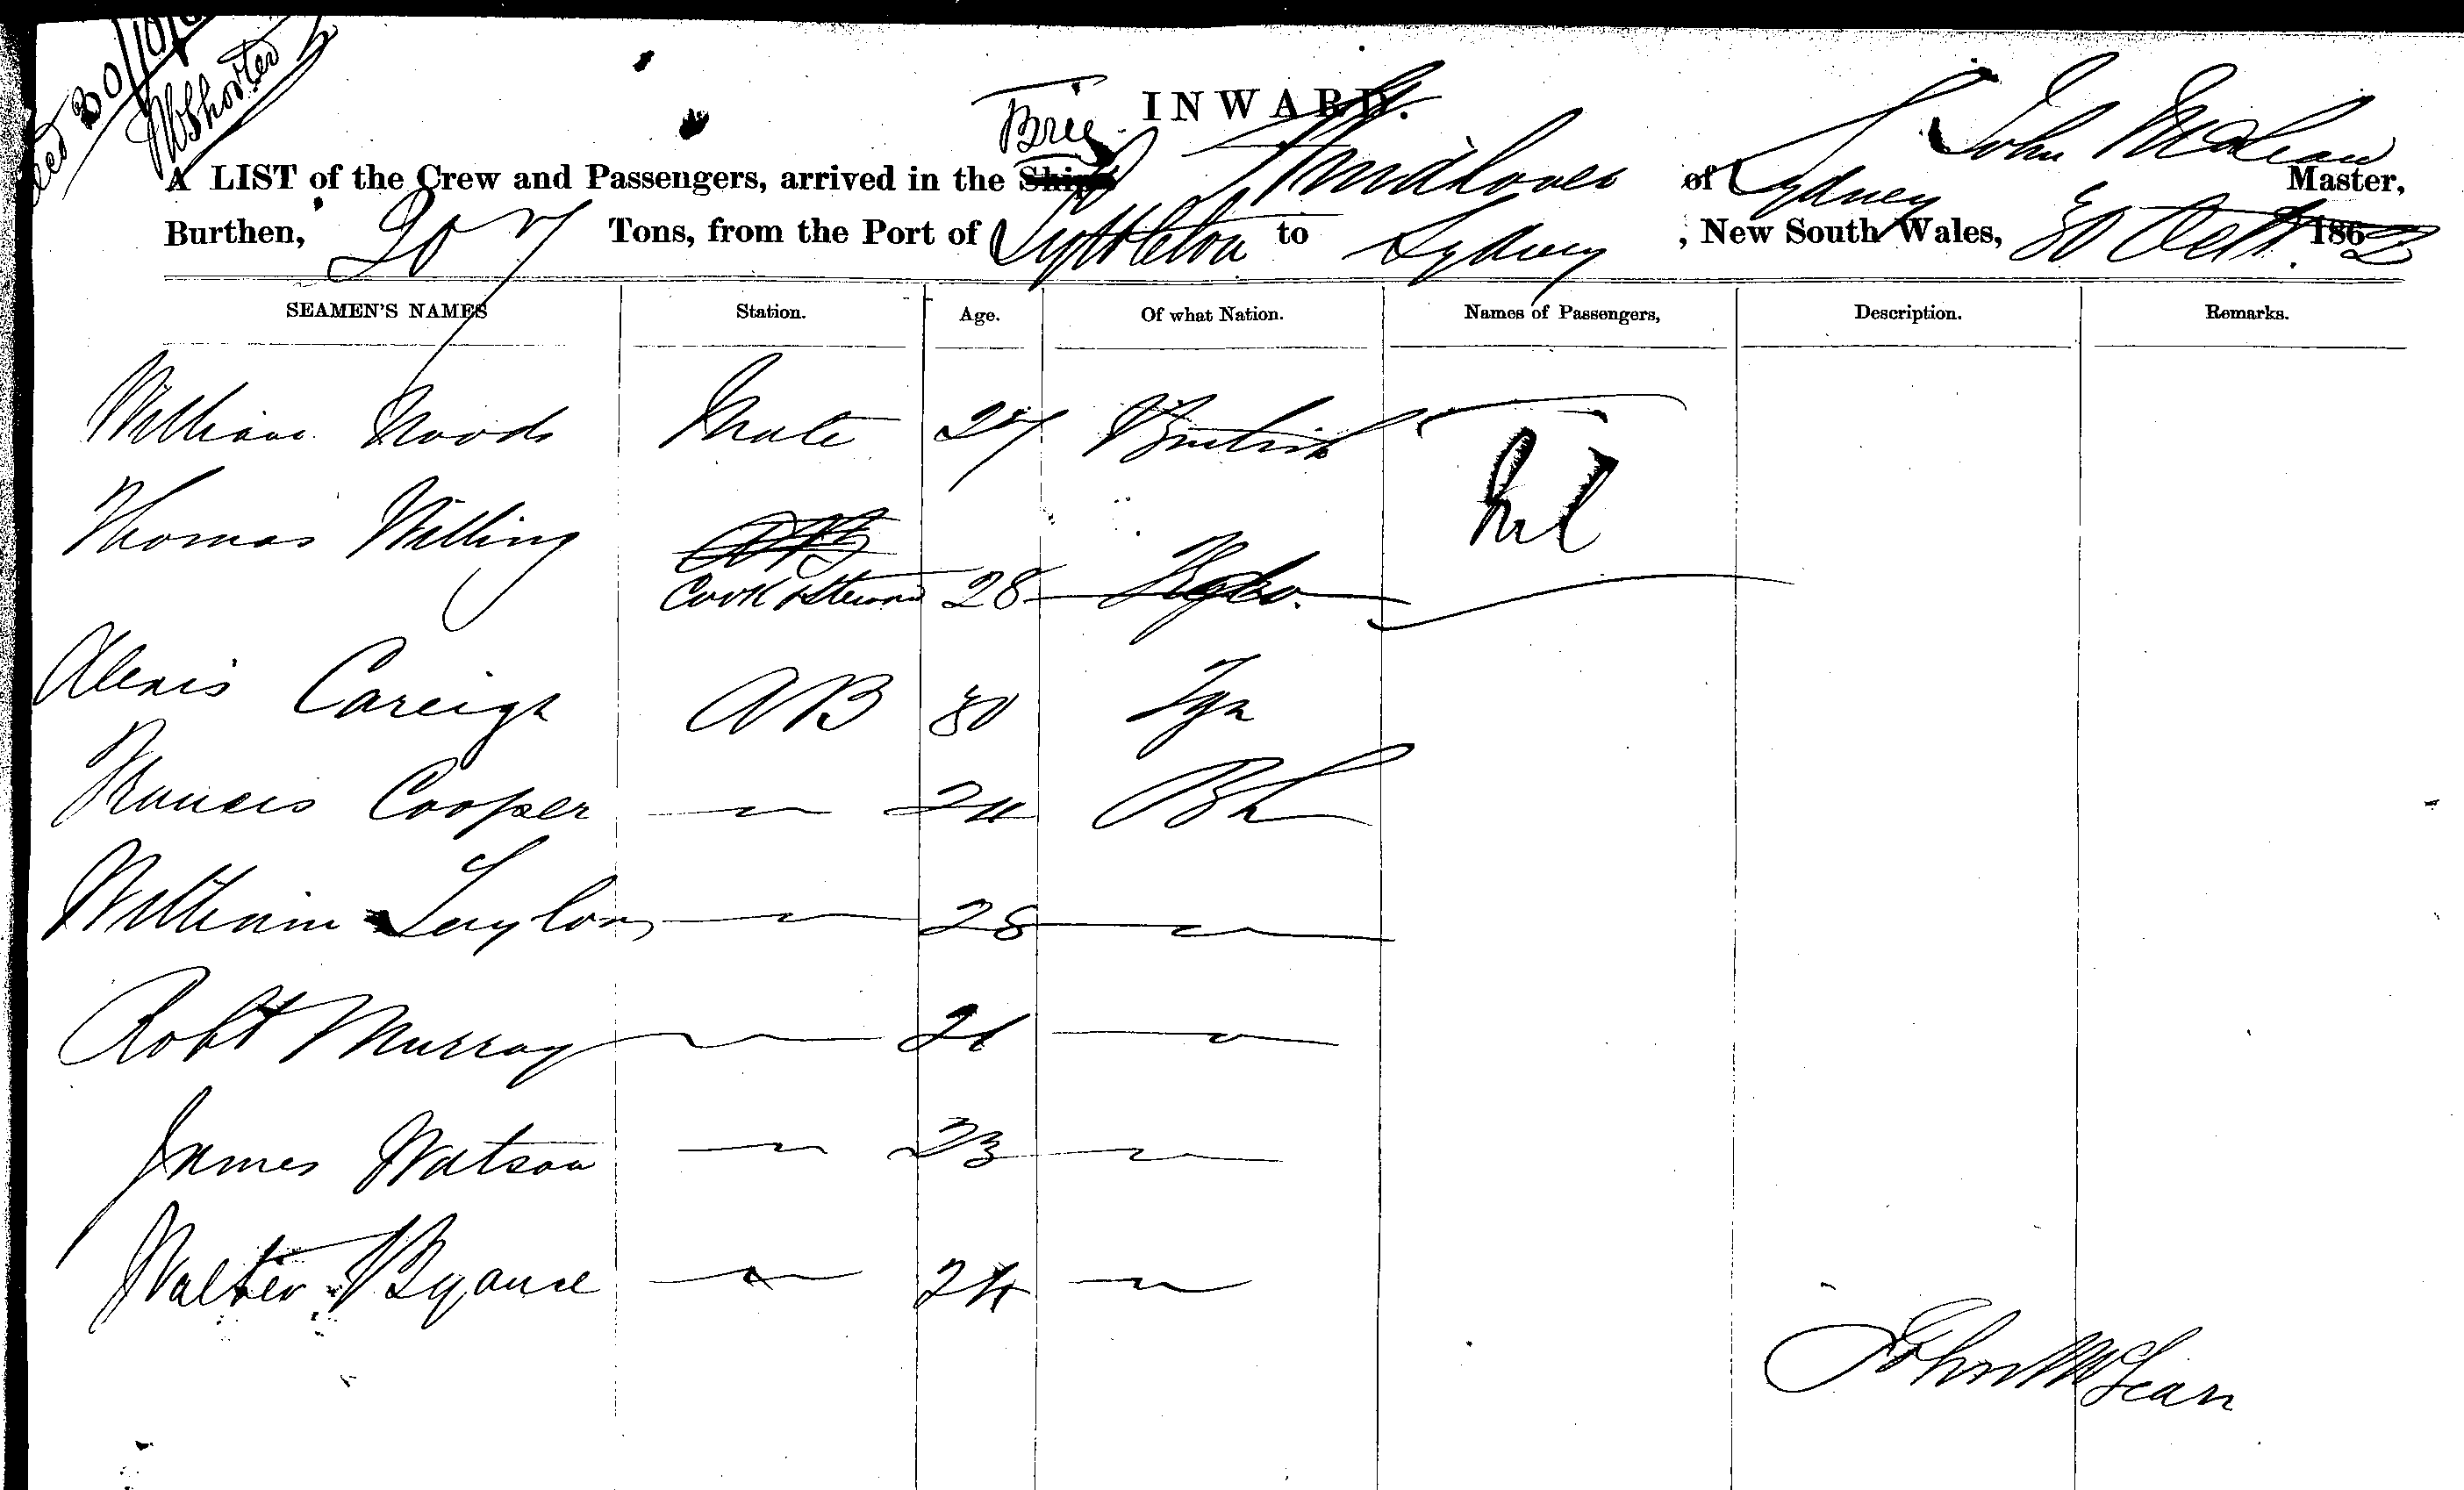 30/10/
W Shorter
INWARD.
Brig
John McLean
A LIST of the Crew and Passengers, arrived in the Ship of Sydney Master,
Burthen, 207 Tons, from the Port of Lyttleton to Sydney, New South Wales, 30 Octr. 1862
SEAMEN'S NAMES Station. Age. Of what Nation. Names of Passengers, Description. Remarks.
William Woods Mate 27 British
Nil
Thomas Willing AB
Cook & Steward 28 Do.
Alexis Careigh AB 30 Fgn
Francis Cooper — 24 Bh
William Taylor — 28 —
Robt Murray — 21 —
James Watson — 23 —
Walter — 24 —
John McLean